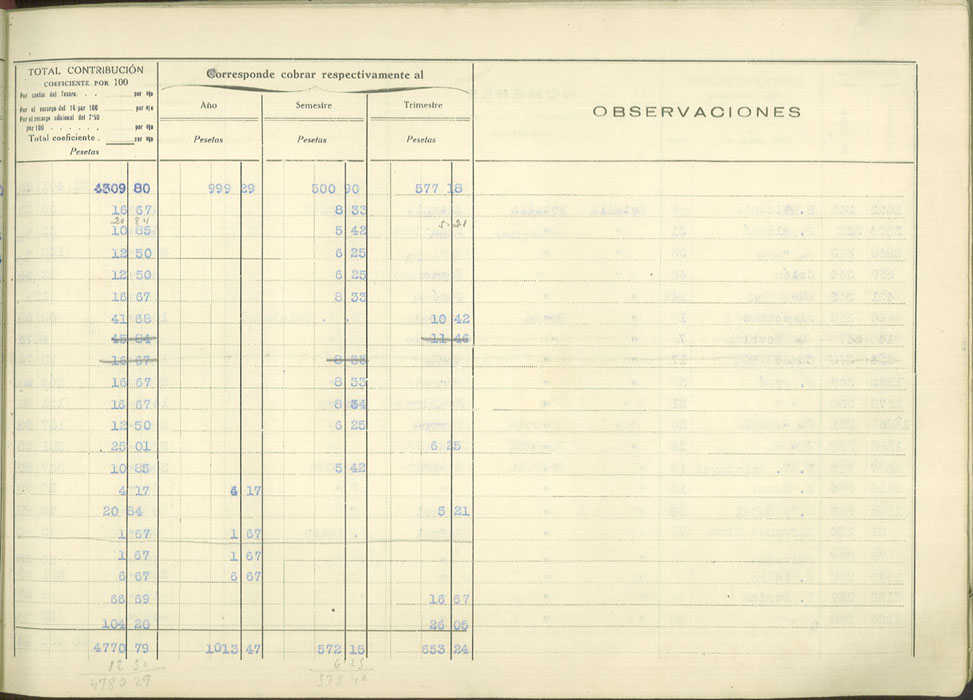 TOTAL CONTRIBUCIÓN
COEFICIENTE POR 100
Por cuotas del Tesoro. . . por %
Por el recargo del 16 por 100 por %
Por el recargo adicional del 7'50
por 100 . . . . . . por %
Total coeficiente . por %
Pesetas
Corresponde cobrar respectivamente al
Año Semestre Trimestre
Pesetas Pesetas Pesetas
OBSERVACIONES
4309 80 999 29 500 90 577 18
16 67 8 33
21 84 5-21
10 85 5 42
12 50 6 25
12 50 6 25
16 67 8 33
41 68 10 42
45 84 11 46
16 67 8 33
16 67 8 33
16 67 8 34
12 50 6 25
25 01 6 25
10 85 5 42
4 17 4 17
20 84 5 21
1 67 1 67
1 67 1 67
6 67 6 67
66 69 16 67
104 20 26 05
4770 79 1013 47 572 15 653 24
12 50 6 25
4783 29 578 40